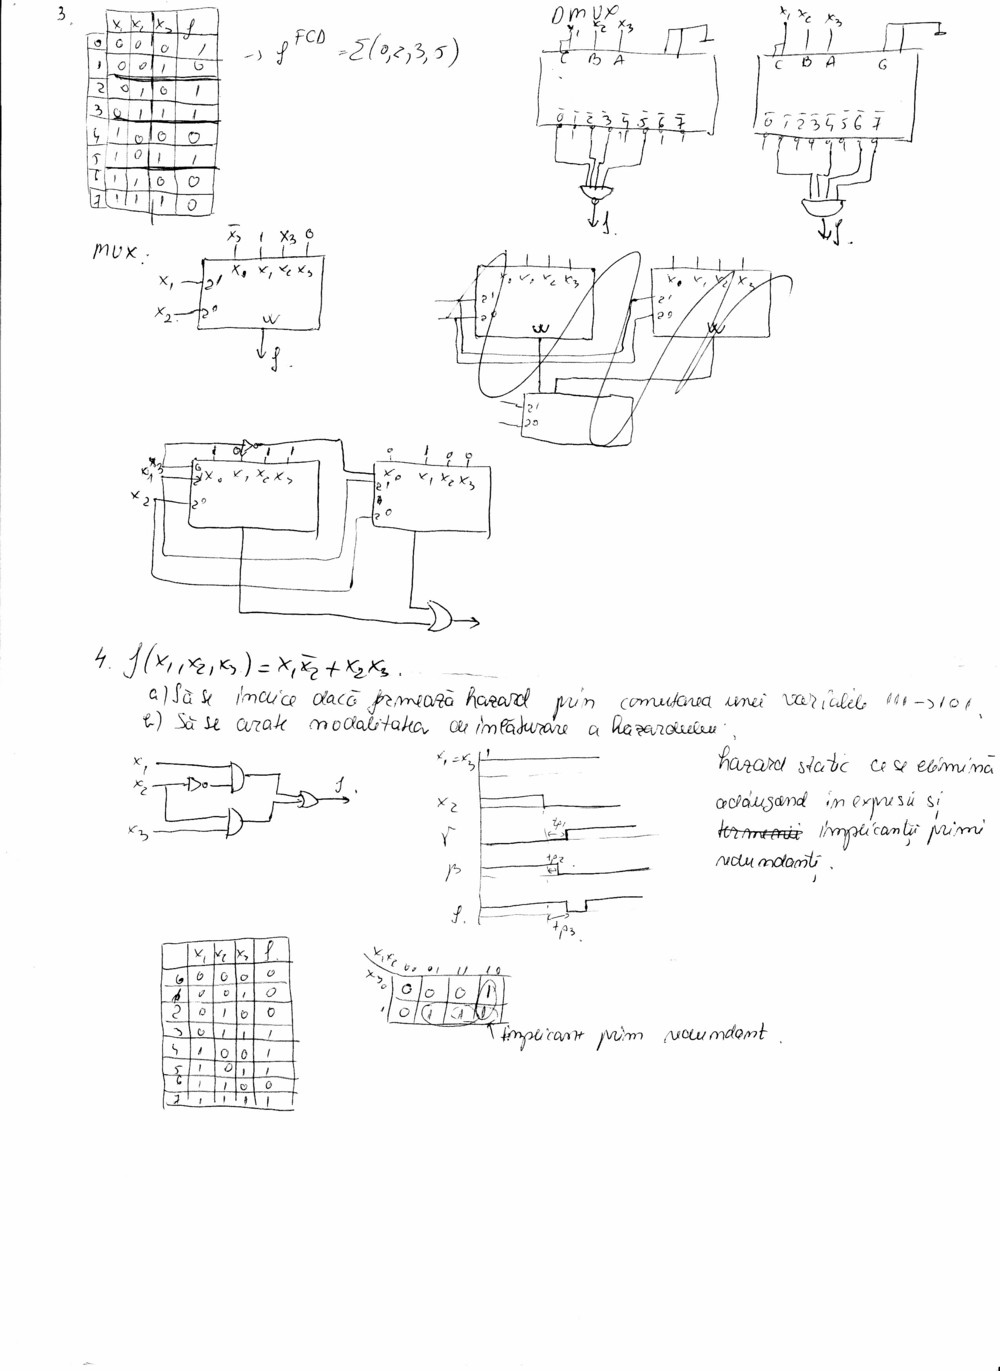 3.
x₁ x₂ x₃ f
0 0 0 0 1
1 0 0 1 0
2 0 1 0 1
3 0 1 1 1
4 1 0 0 0
5 1 0 1 1
6 1 1 0 0
7 1 1 1 0
→ f^FCD = Σ(0,2,3,5)
DMUX
x₁ x₂ x₃
C B A
0̄ 1̄ 2̄ 3̄ 4̄ 5̄ 6̄ 7̄
f.
x₁ x₂ x₃
C B A G
0̄ 1̄ 2̄ 3̄ 4̄ 5̄ 6̄ 7̄
f.
MUX:
x̄₃ 1 x₃ 0
x₀ x₁ x₂ x₃
x₁ 2¹
x₂ 2⁰
W
f.
x₀ x₁ x₂ x₃
2¹
2⁰
W
x₀ x₁ x₂ x₃
2¹
2⁰
W
2¹
2⁰
1 0 1 1
x₃
x₁
x₂
x₀ x₁ x₂ x₃
2⁰
0 1 0 0
x₀ x₁ x₂ x₃
2¹
2⁰
4. f(x₁,x₂,x₃) = x₁x̄₂ + x₂x₃.
a) Să se indice dacă formează hazard prin comutarea unei variabile 111→101.
b) Să se arate modalitatea de înlăturare a hazardului.
x₁
x₂
x₃
f.
x₁=x₃ 1
x₂
γ tp₁
β tp₂
f.
tp₃
hazard static ce se elimină
adăugand in expresii și
termenii implicanții primi
redundanți.
x₁ x₂ x₃ f
0 0 0 0 0
1 0 0 1 0
2 0 1 0 0
3 0 1 1 1
4 1 0 0 1
5 1 0 1 1
6 1 1 0 0
7 1 1 1 1
x₁x₂ 00 01 11 10
x₃
0 0 0 0 1
1 0 1 1 1
implicant prim redundant.